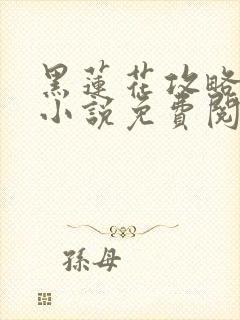 黑蓮花攻略
小說免費閱
孫母